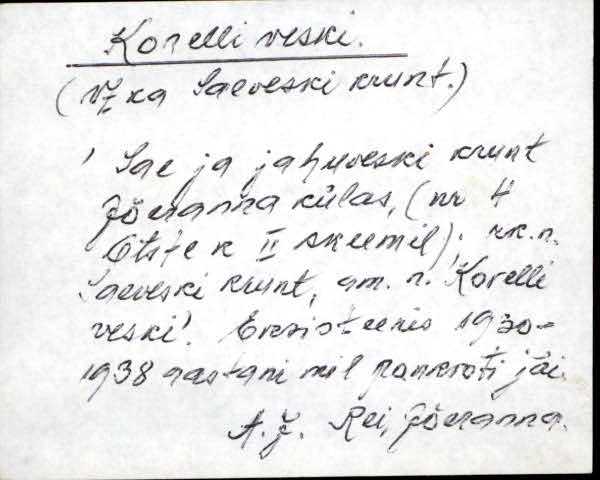 Korelli veski.
(Vt ka Saeveski krunt.)
' Sae ja jahuveski krunt
Jõeranna külas, (nr 4
Otste k II skeemil). rk. n.
Saeveski krunt, am. n. 'Korelli
veski'. Eksisteeris 1930-
1938 aastani mil pankroti jäi.
A. J. Rei, Jõeranna.